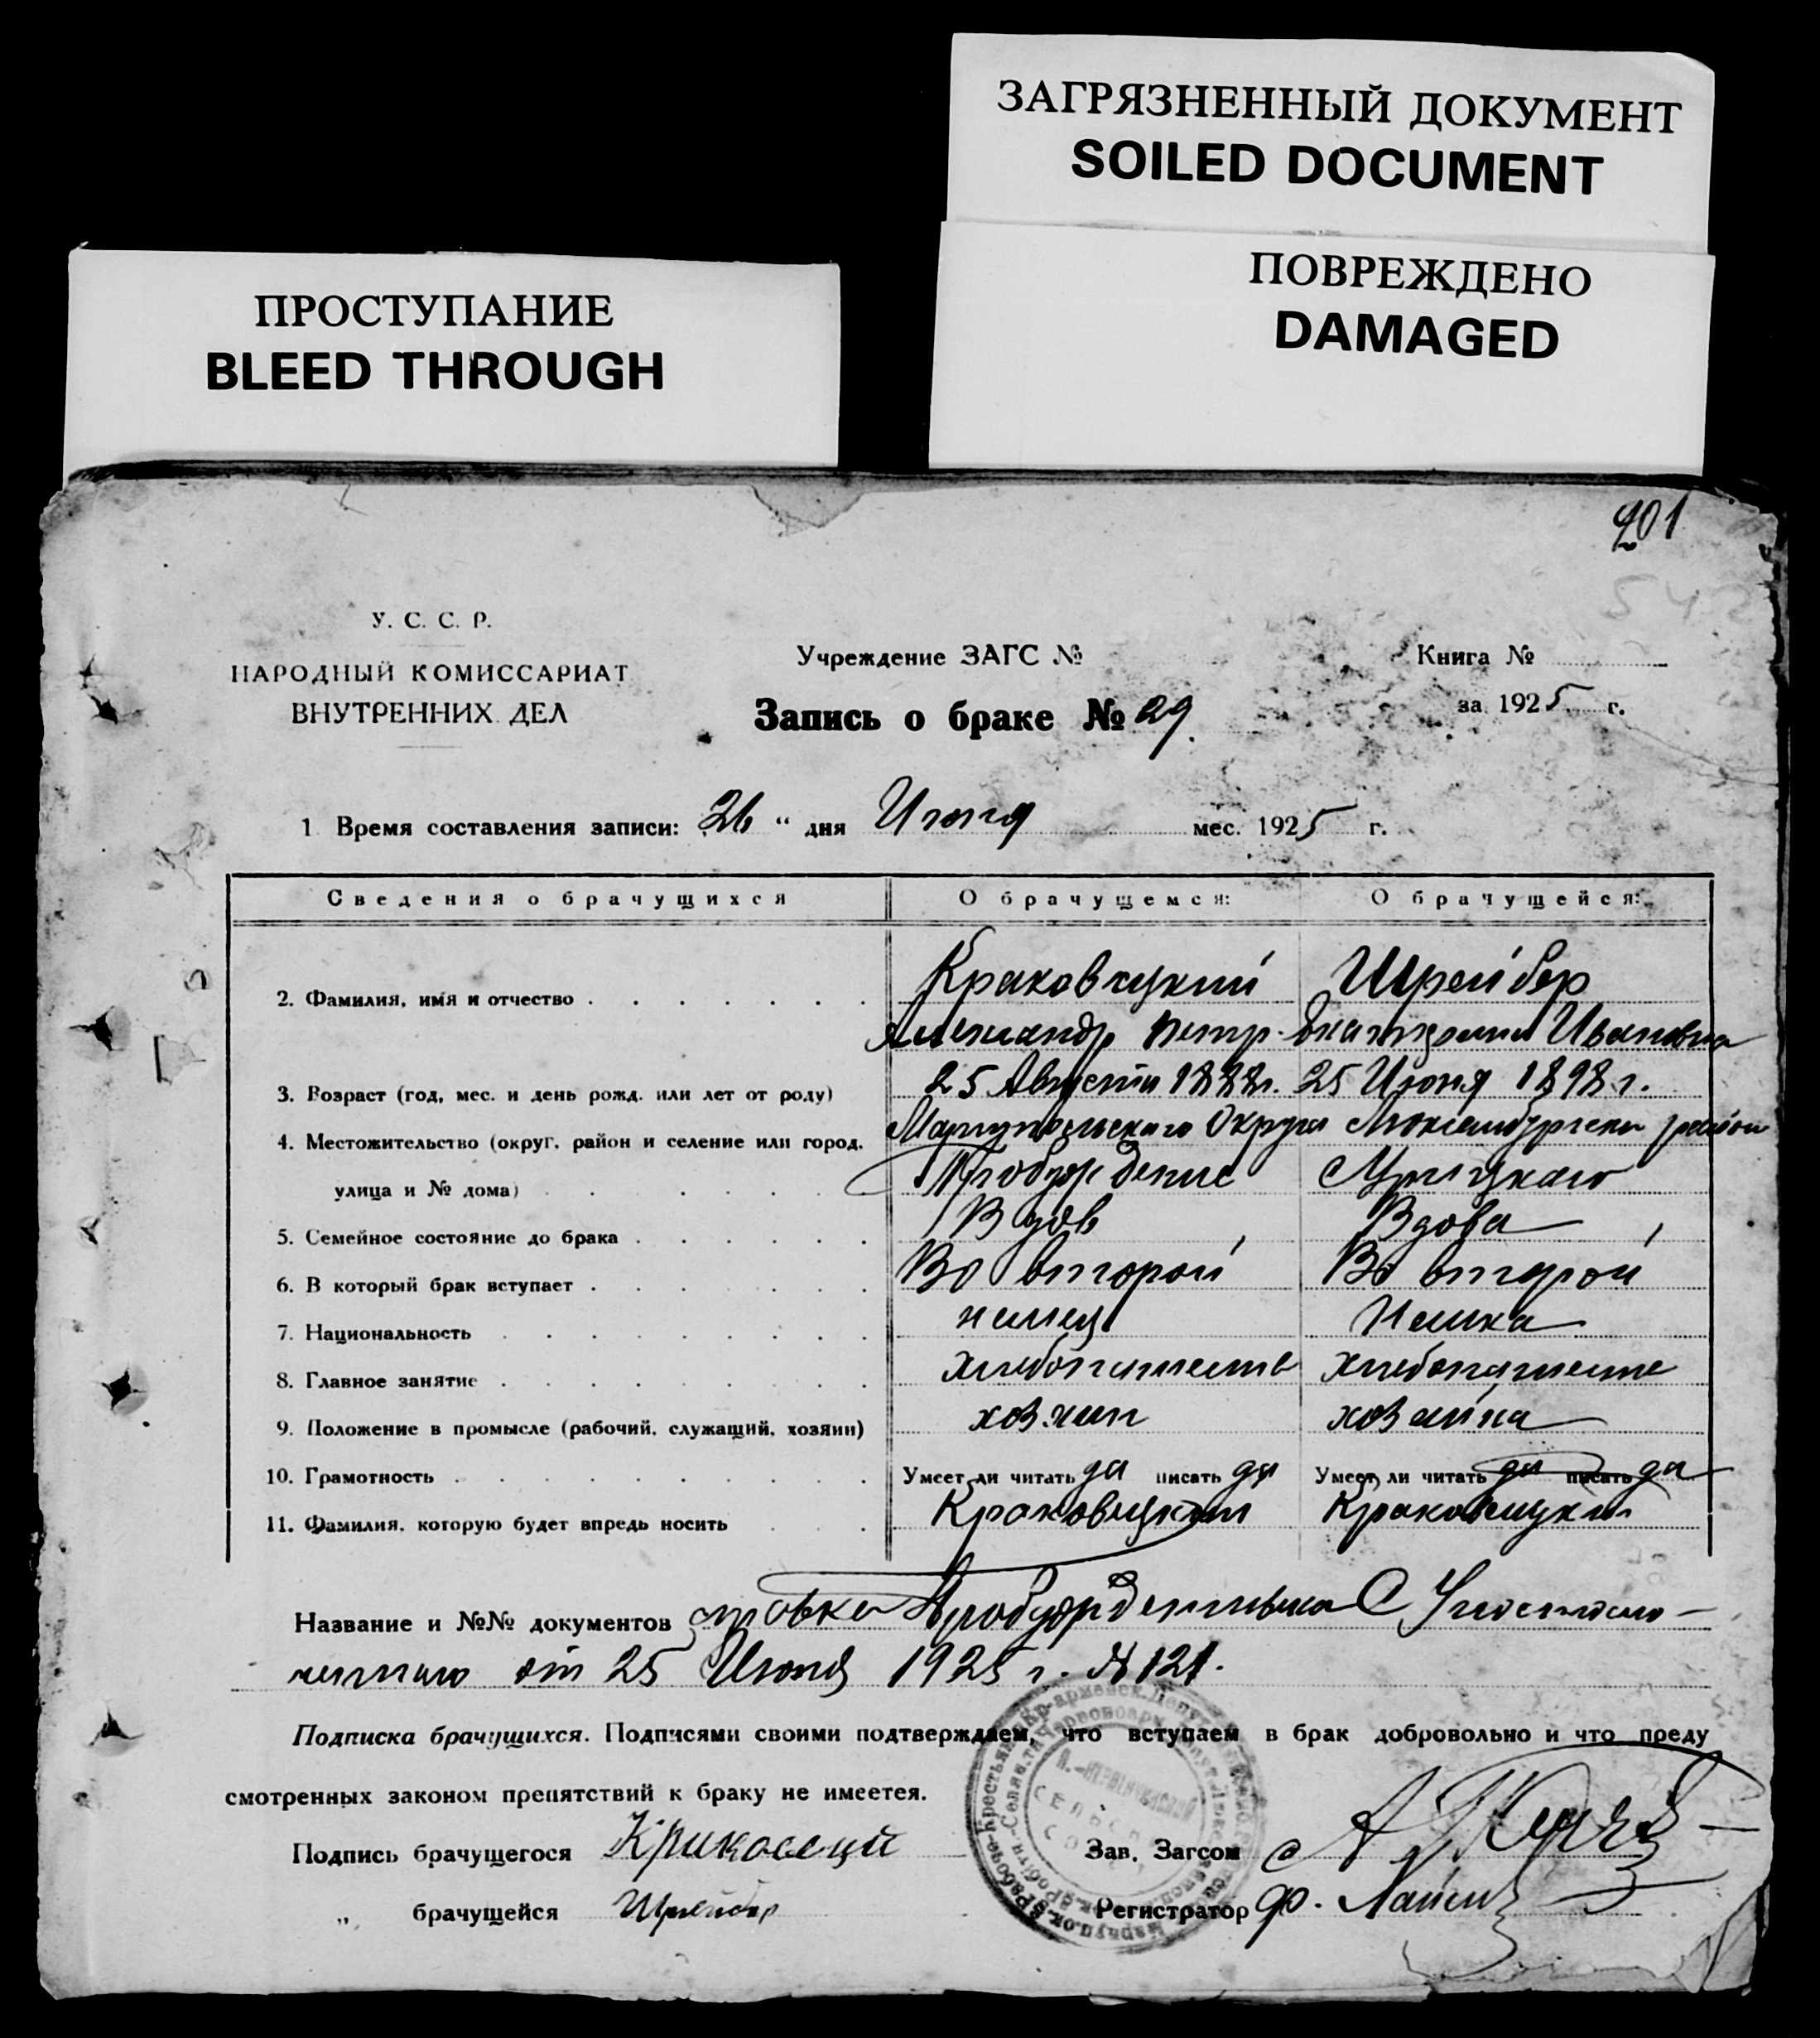 ЗАГРЯЗНЕННЫЙ ДОКУМЕНТ
SOILED DOCUMENT
ПОВРЕЖДЕНО
DAMAGED
ПРОСТУПАНИЕ
BLEED THROUGH
901
У. С. С. Р.
НАРОДНЫЙ КОМИССАРИАТ
ВНУТРЕННИХ ДЕЛ
Учреждение ЗАГС №
Книга №
за 1925 г.
Запись о браке № 29.
1 Время составления записи: 26 " дня Июня мес. 1925 г.
Сведения о брачущихся О брачущемся: О брачущейся:
2. Фамилия, имя и отчество Краковецкий Шрейбер
Александр Петр. Екатерина Ивановна
3. Возраст (год, мес. и день рожд. или лет от роду) 25 Августа 1888г. 25 Июня 1898 г.
4. Местожительство (округ, район и селение или город, Мариупольского Округа Люксембургски район
улица и № дома)
5. Семейное состояние до брака Вдов Вдова
6. В который брак вступает Во второй Во второй
7. Национальность немец Немка
8. Главное занятие хлебопашеств хлебопашеств
9. Положение в промысле (рабочий, служащий, хозяин) хозяин хозяйка
10. Грамотность Умеет ли читать да писать да Умеет ли читать да писать да
11. Фамилия, которую будет впредь носить Краковецкий Краковецкий
Название и №№ документов С Уполномо-
ченного от 25 Июня 1925 г. № 121.
Подписка брачущихся. Подписями своими подтверждаем, что вступаем в брак добровольно и что преду
смотренных законом препятствий к браку не имеется.
Подпись брачущегося Зав. Загсом
„ брачущейся Шрейбер Регистратор